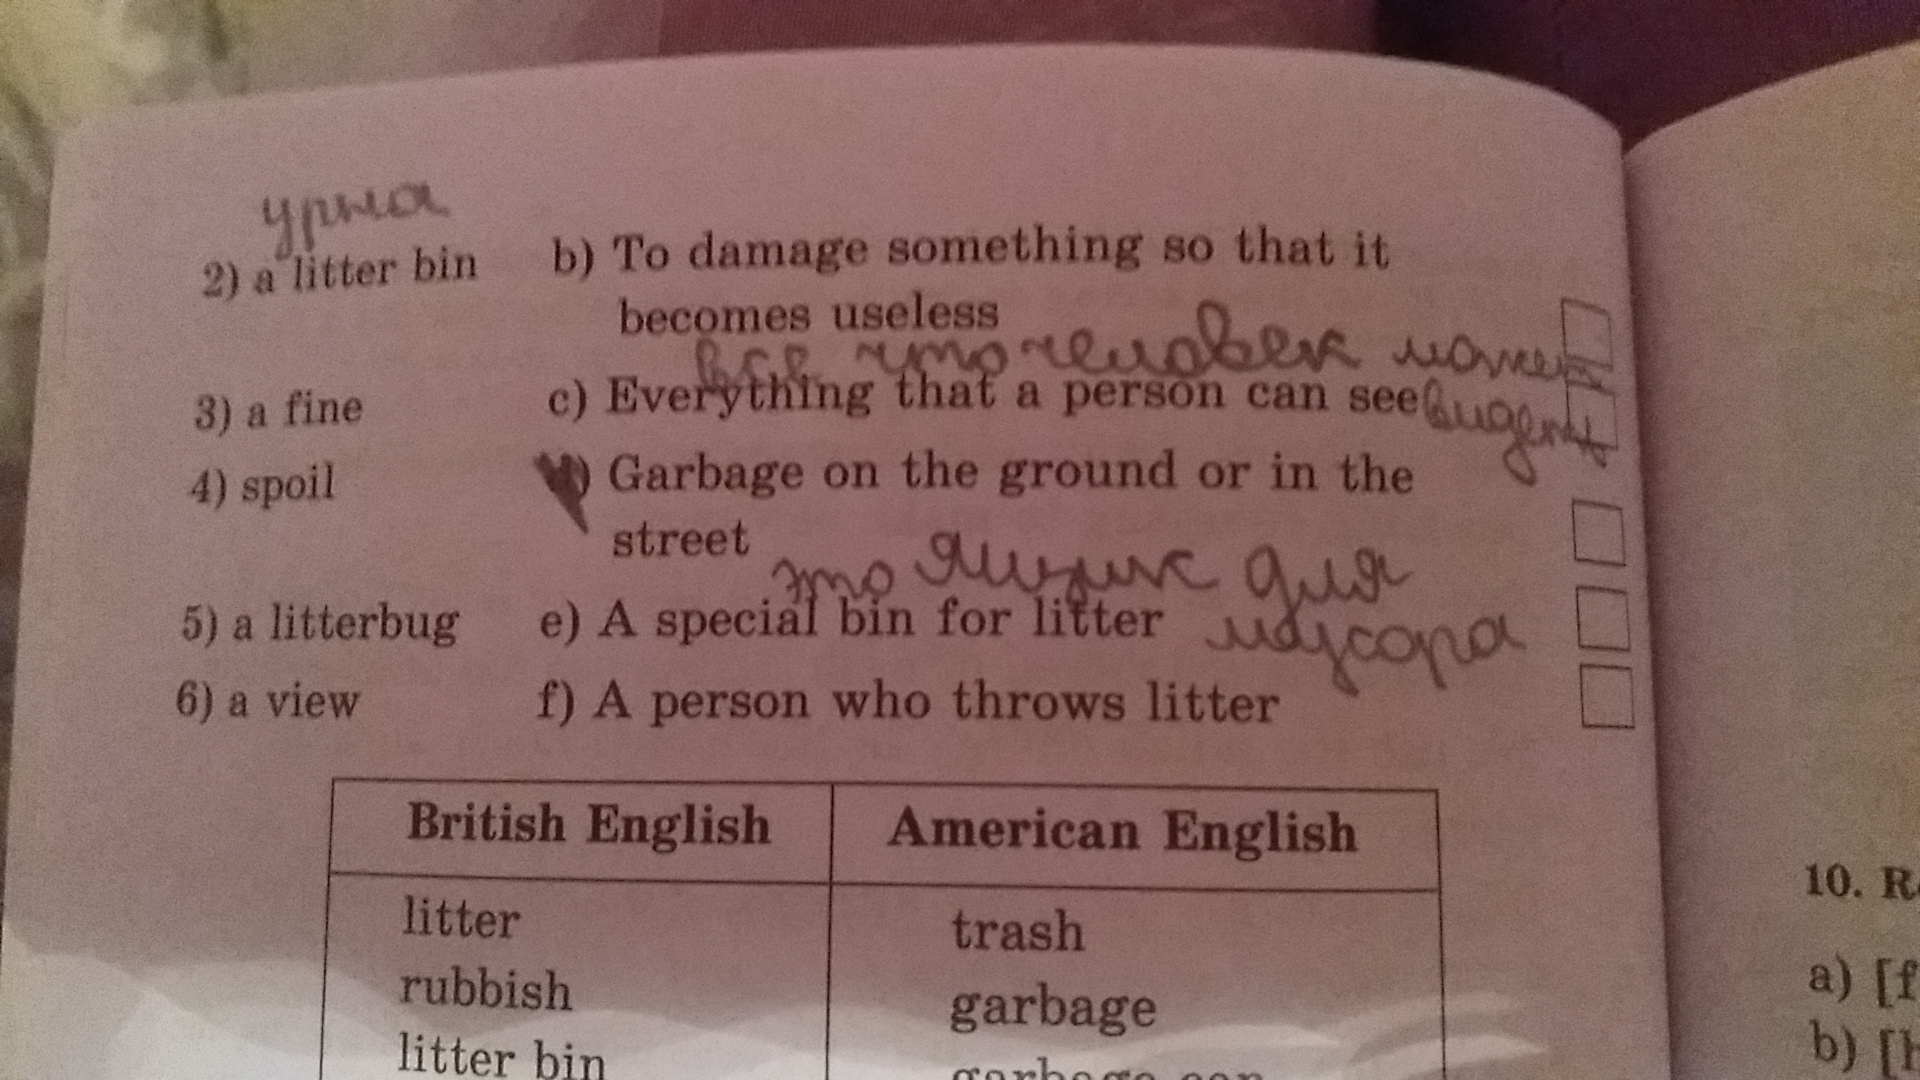 урна
2) a litter bin b) To damage something so that it
becomes useless
все что человек может
3) a fine c) Everything that a person can see видеть
4) spoil Garbage on the ground or in the
street
это ящик для
5) a litterbug e) A special bin for litter мусора
6) a view f) A person who throws litter
British English American English
litter trash
rubbish garbage
litter bin garbage can
10.
a) [f
b) [h